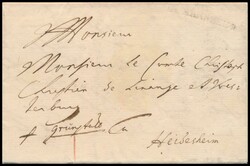 Monsieur
Monsieur le Comte Christoph
Chretien de Linange et Wes
terburg
p Grünstat
Heidesheim